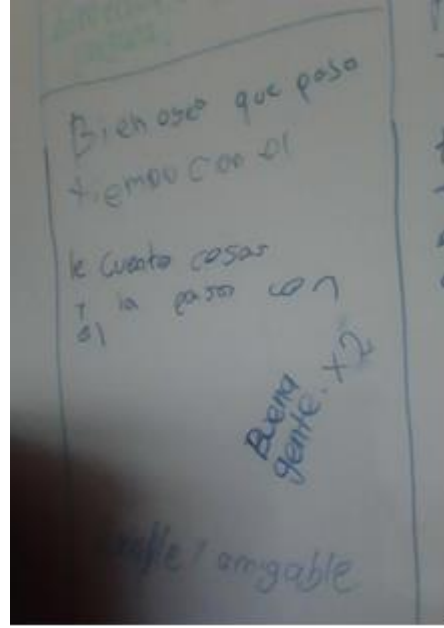 Bien oseo que paso
tiempo con el
le cuento cosas
y la paso con
el
Buena
gente. x2
amigable